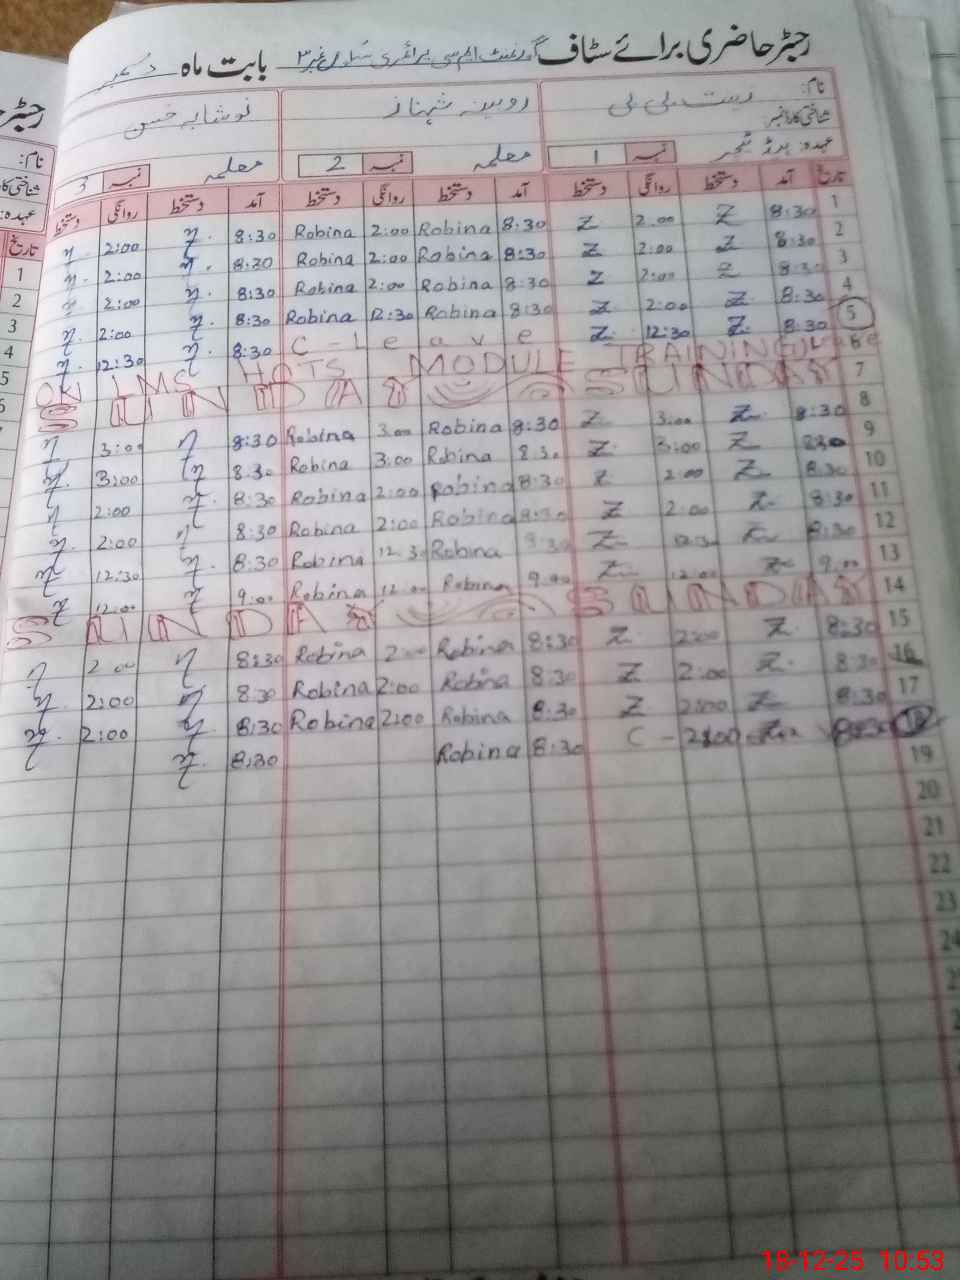 رجسٹر حاضری برائے سٹاف گورنمنٹ ایم سی پرائمری سکول نمبر ۳ بابت ماہ دسمبر
نام: زینت بی بی روبینہ شہناز نوشابہ حسن
شناختی کارڈ نمبر:
عہدہ: ہیڈ ٹیچر نمبر 1 معلمہ نمبر 2 معلمہ نمبر 3
تاریخ آمد دستخط روانگی دستخط آمد دستخط روانگی دستخط آمد دستخط روانگی دستخط
1 8:30 Z 2:00 Z 8:30 Robina 2:00 Robina 8:30 2:00
2 8:30 Z 2:00 Z 8:30 Robina 2:00 Robina 8:30 2:00
3 8:30 Z 2:00 Z 8:30 Robina 2:00 Robina 8:30 2:00
4 8:30 Z 2:00 Z 8:30 Robina 12:30 Robina 8:30 2:00
5 8:30 Z 12:30 Z C - Leave 8:30 12:30
6 ON LMS HOTS MODULE TRAINING
7 SUNDAY SUNDAY
8 8:30 Z 3:00 Z 8:30 Robina 3:00 Robina 8:30 3:00
9 8:30 Z 3:00 Z 8:30 Robina 3:00 Robina 8:30 3:00
10 8:30 Z 2:00 Z 8:30 Robina 2:00 Robina 8:30 2:00
11 8:30 Z 2:00 Z 8:30 Robina 2:00 Robina 8:30 2:00
12 8:30 Z 12:30 Z 8:30 Robina 12:30 Robina 8:30 12:30
13 9:00 Z 12:00 Z 9:00 Robina 12:00 Robina 9:00 12:00
14 SUNDAY SUNDAY
15 8:30 Z 2:00 Z 8:30 Robina 2:00 Robina 8:30 2:00
16 8:30 Z 2:00 Z 8:30 Robina 2:00 Robina 8:30 2:00
17 8:30 Z 2:00 Z 8:30 Robina 2:00 Robina 8:30 2:00
18 C - 8:30 Robina 8:30
19
20
21
22
23
24
رجسٹر
نام:
عہدہ:
تاریخ
1
2
3
4
5
6
18-12-25 10:53